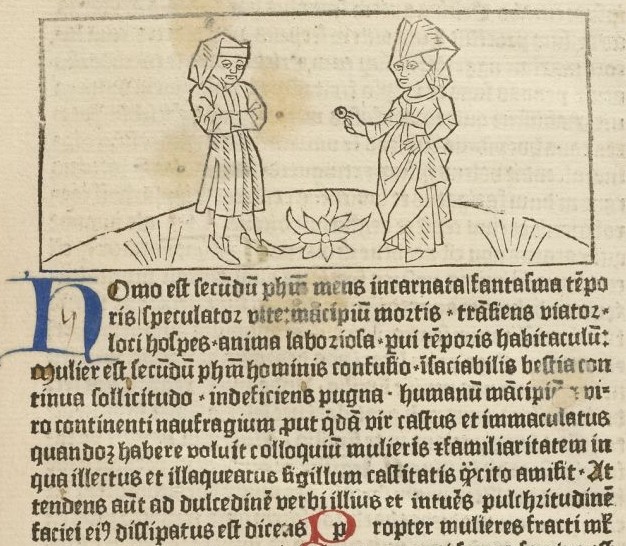 HOmo est secūdū phm̄ mens incarnata/fantasma tēpo
ris/speculator vite:mācipiū mortis · trāsiens viator·
loci hospes·anima laboriosa·pui tēporis habitaculū:
Mulier est secūdū phm̄ hominis confusio·īsaciabilis bestia con
tinua sollicitudo · indeficiens pugna · humanū mācipiū · vi-
ro continenti naufragium ꝓut qdā vir castus et immaculatus
quandoꝫ habere voluit colloquiū mulieris ⁊familiaritatem in
qua illectus et illaqueatus sigillum castitatis qͣꝫcito amisit· At
tendens aūt ad dulcedinē verbi illius et intuēs pulchritudinē
faciei eiꝰ dissipatus est dicens Propter mulieres fracti